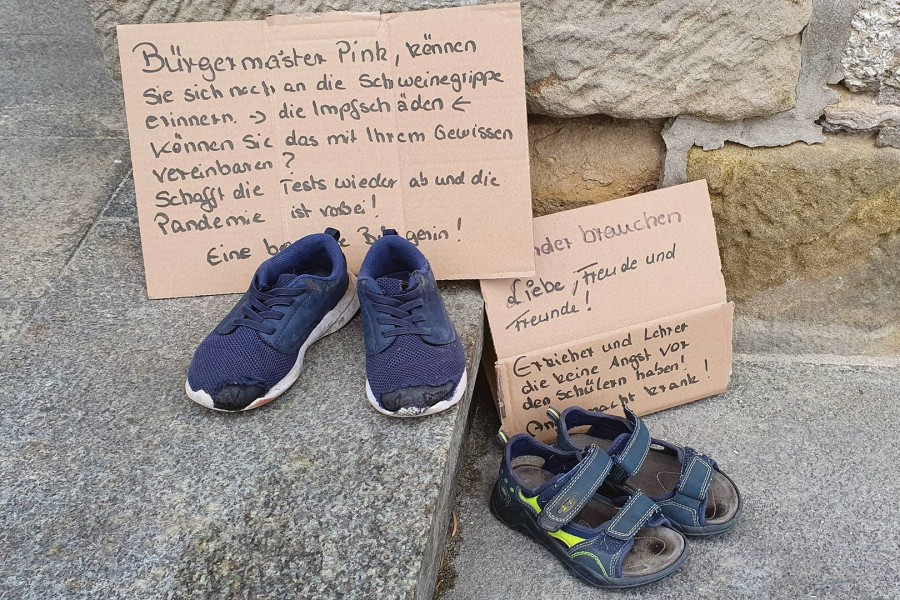 Bürgermeister Pink, können
Sie sich noch an die Schweinegrippe
erinnern. → die Impfschäden ←
können Sie das mit Ihrem Gewissen
vereinbaren?
Schafft die Tests wieder ab und die
Pandemie ist vorbei!
Eine be Bürgerin!
nder brauchen
Liebe, Freude und
Freunde!
Erzieher und Lehrer
die keine Angst vor
den Schülern haben!
An macht krank!